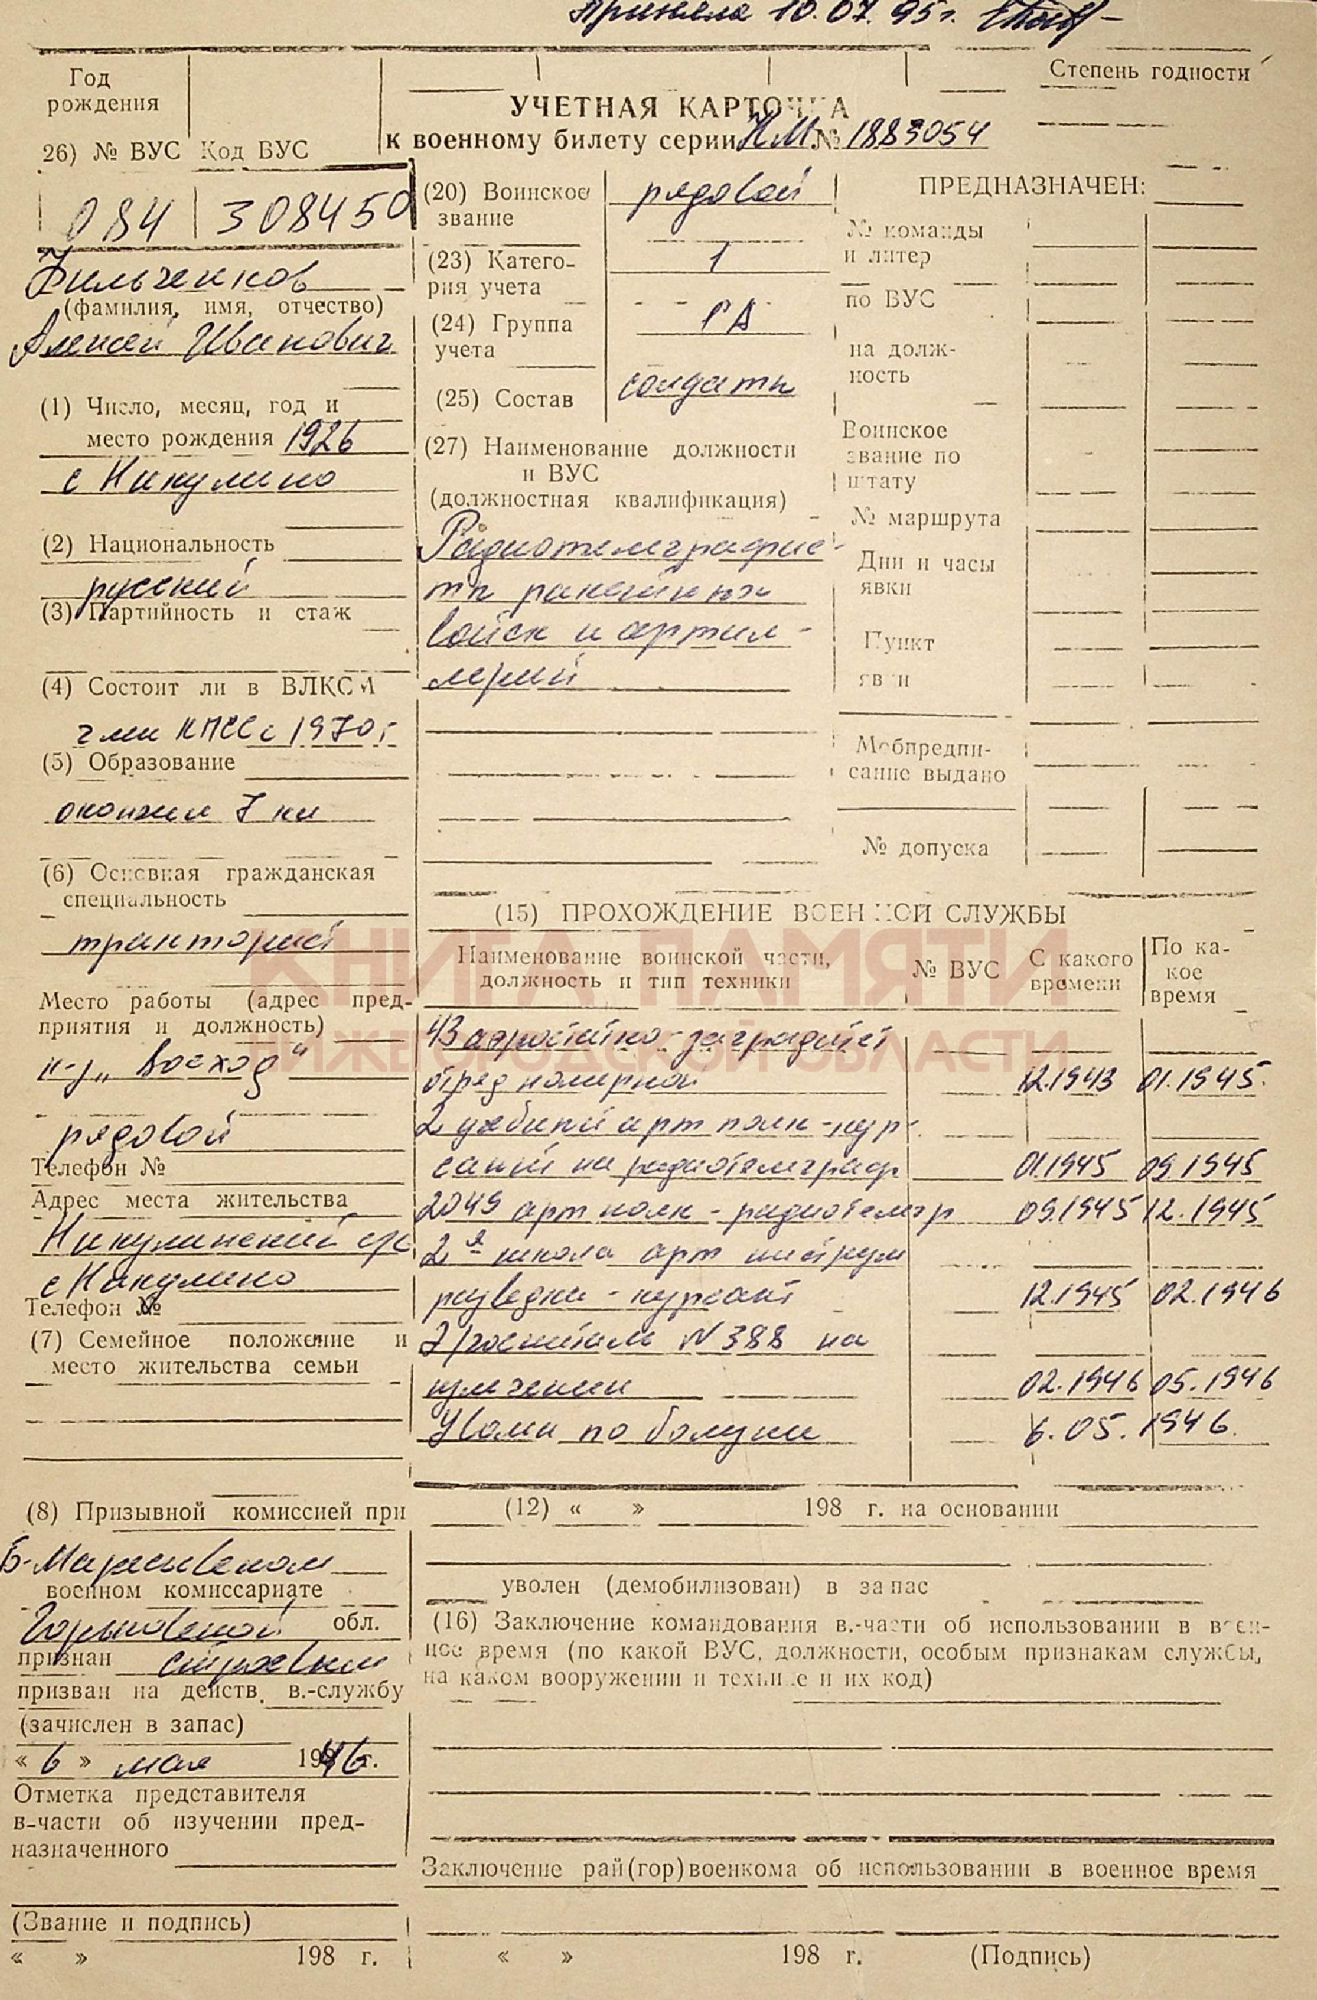 Приняла 10.07.95г.
Год рождения
Степень годности
УЧЕТНАЯ КАРТОЧКА
к военному билету серии НМ № 1883054
26) № ВУС Код ВУС
084 308450
Фильченков
(фамилия, имя, отчество)
Алексей Иванович
(1) Число, месяц, год и
место рождения 1926
с Никулино
(2) Национальность
русский
(3) Партийность и стаж
(4) Состоит ли в ВЛКСМ
член КПСС с 1970г
(5) Образование
окончил 7 кл
(6) Основная гражданская
специальность
тракторист
Место работы (адрес пред-
приятия и должность)
к-з „Восход"
рядовой
Телефон №
Адрес места жительства
Никулинский с/с
с Никулино
Телефон №
(7) Семейное положение и
место жительства семьи
(8) Призывной комиссией при
Б-Марисевском
военном комиссариате
Горьковской обл.
признан строевым
призван на действ. в.-службу
(зачислен в запас)
« 6 » мая 1946 г.
Отметка представителя
в-части об изучении пред-
назначенного
(Звание и подпись)
« » 198 г.
(20) Воинское
звание
рядовой
(23) Катего-
рия учета
1
(24) Группа
учета
РА
(25) Состав
солдаты
(27) Наименование должности
и ВУС
(должностная квалификация)
Радиотелеграфис-
ты ракетных
войск и артил-
лерии
ПРЕДНАЗНАЧЕН:
№ команды
и литер
по ВУС
на долж-
ность
Воинское
звание по
штату
№ маршрута
Дни и часы
явки
Пункт
явки
Мобпредпи-
сание выдано
№ допуска
(15) ПРОХОЖДЕНИЕ ВОЕННОЙ СЛУЖБЫ
Наименование воинской части,
должность и тип техники
№ ВУС
С какого
времени
По ка-
кое
время
43 аэростатно-заградит
отряд номерной 12.1943 01.1945.
2 учебный арт полк-кур-
сант на радиотелеграф 01.1945 09.1945
2049 арт полк - радиотелегр 09.1945 12.1945
2я школа арт инструм
разведки - курсант 12.1945 02.1946
Э/госпиталь N 388 на
излечении 02.1946 05.1946
Уволен по болезни 6.05.1946.
(12) « » 198 г. на основании
уволен (демобилизован) в запас
(16) Заключение командования в.-части об использовании в воен-
ное время (по какой ВУС, должности, особым признакам службы,
на каком вооружении и технике и их код)
Заключение рай(гор)военкома об использовании в военное время
« » 198 г. (Подпись)
КНИГА ПАМЯТИ
НИЖЕГОРОДСКОЙ ОБЛАСТИ